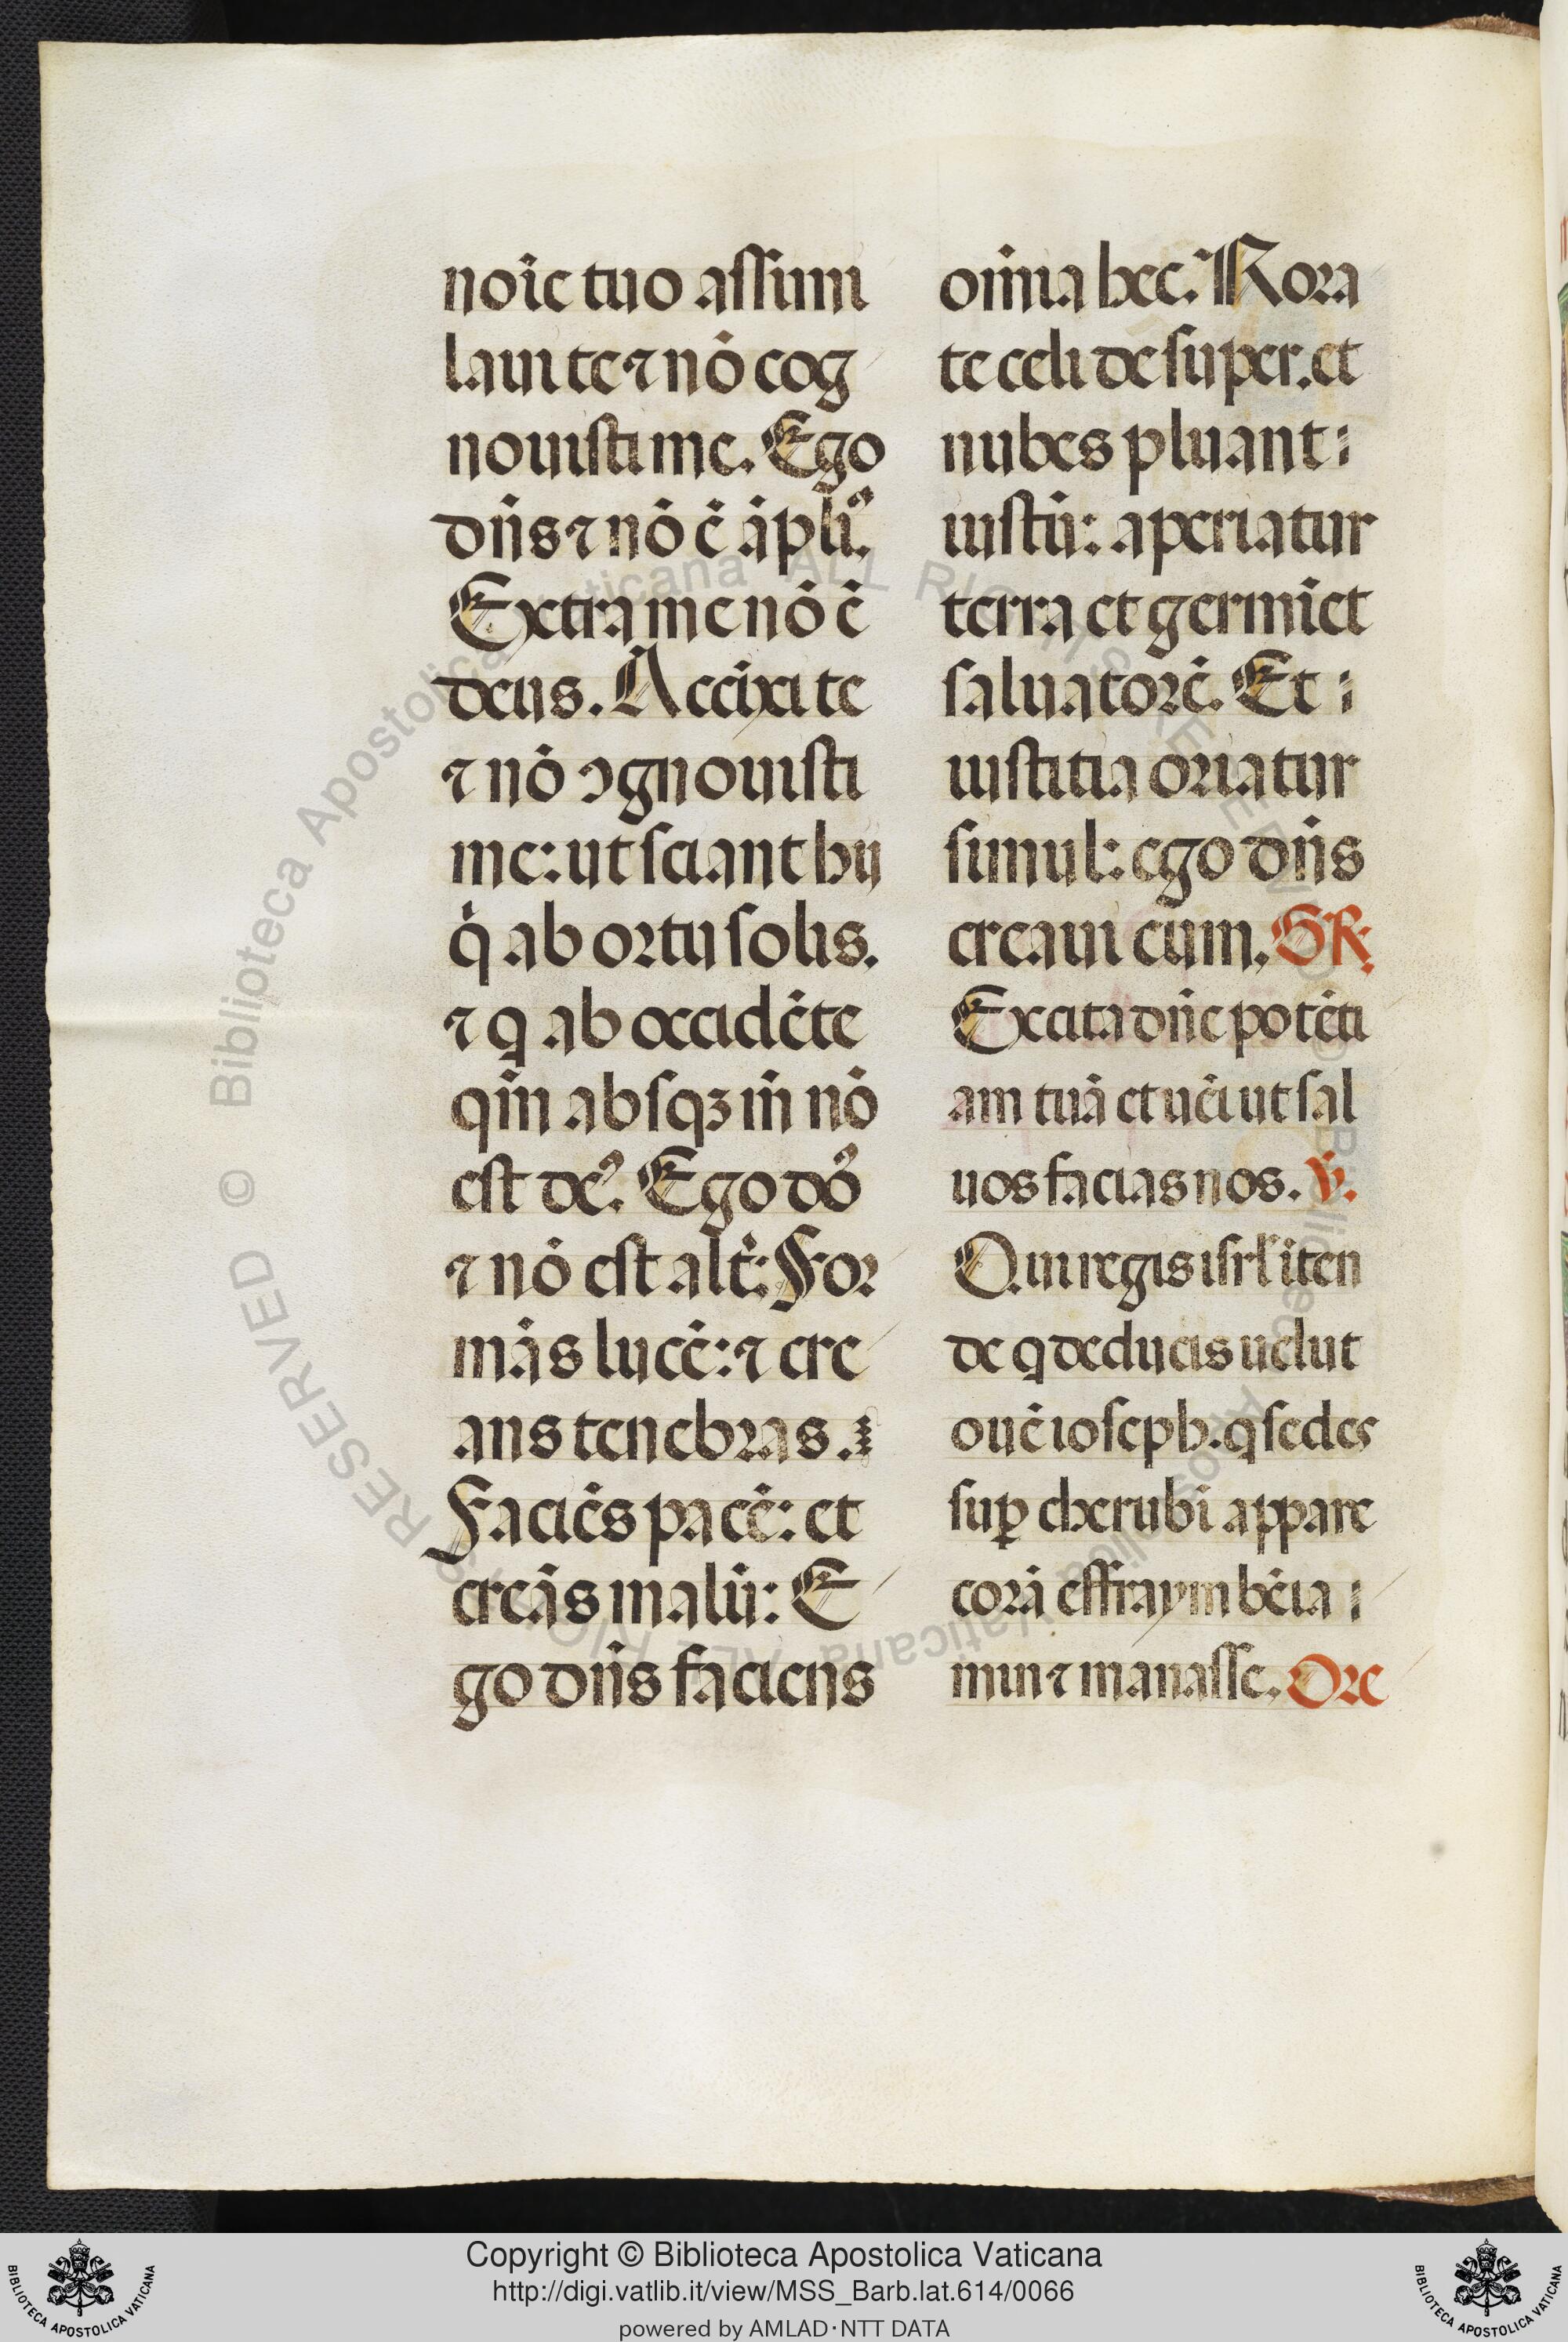 noīe tuo assimi
laui te ⁊ nō cog
nouisti me. Ego
dn̄s ⁊ nō ē āpliꝰ.
Extra me nō ē
deus. Accīxi te
⁊ nō ꝯgnouisti
me: ut sciant hii
q̇ ab ortu solis.
⁊ q ab occidēte
qm̄ absqꝫ m̄ nō
est deꝰ. Ego dō
⁊ nō est alt̄: For
māS lucē: ⁊ cre
ans tenebras.
Faciēs pacē: et
creās malū: E
go dn̄s faciens
om̄ia hec. Rora
te celi desuper. et
nubes pluant
iustū: aperiatur
terra et germīet
saluatorē. Et
iustitia oriatur
simul: ego dn̄s
creaui eum. GR.
Excita dn̄e potēti
am tuā et uēi ut sal
uos facias nos. V̄.
Qui regis isrl̄ īten
de q deducis uelut
ouē ioseph. q sedes
suꝑ cherubī appare
corā effraym bēia
min ⁊ manasse. Ore
© Biblioteca Apostolica Vaticana ALL RIGHTS RESERVED
Copyright © Biblioteca Apostolica Vaticana
http://digi.vatlib.it/view/MSS_Barb.lat.614/0066
powered by AMLAD·NTT DATA
BIBLIOTECA APOSTOLICA VATICANA
BIBLIOTECA APOSTOLICA VATICANA